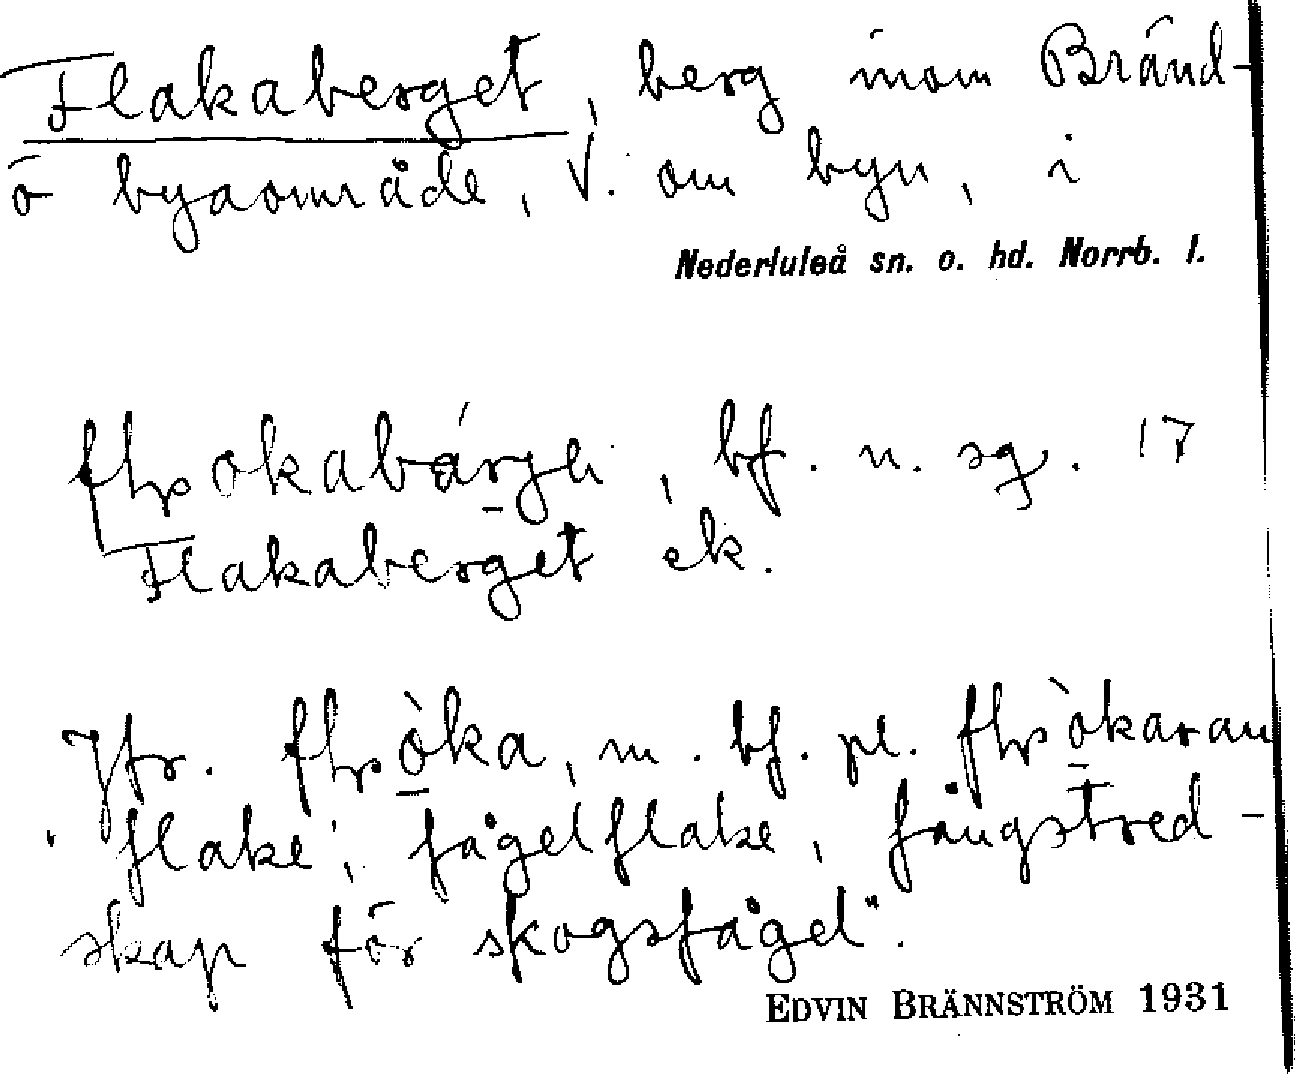 Flakaberget, berg inom Bränd-
ö byaområde, V. om byn, i
Nederluleå sn. o. hd. Norrb. l.
bf. n. sg. 17
Flakaberget ek.
Jfr. m. bf. pl.
"flake; fågelflake, fångstred-
skap för skogsfågel".
EDVIN BRÄNNSTRÖM 1931